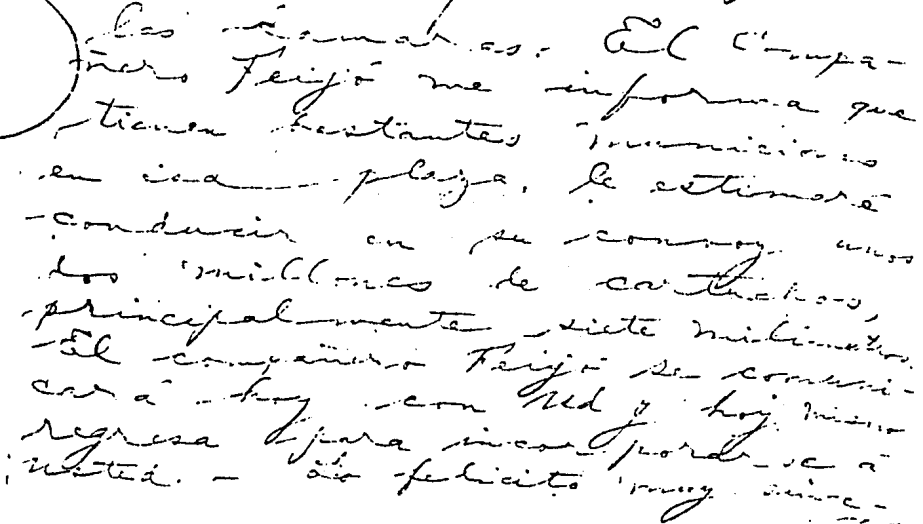 las cámaras. El Compa-
ñero Feijó me informa que
tienen bastantes municiones
en esa plaza, le estimaré
conducir en su convoy unos
dos millones de cartuchos,
principalmente siete milímetros.
El compañero Feijó se comuni-
cará hoy con Ud y hoy mismo
regresa para incorporarse á
usted. - Lo felicito muy since-